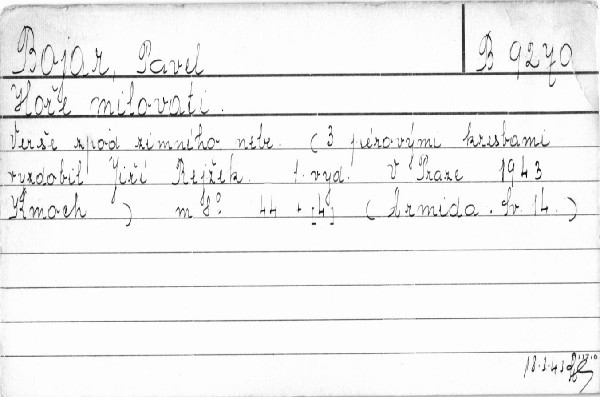 Bojar, Pavel B 9270
Hoře milovati.
Verše zpod zimního nebe. (3 pérovými kresbami
vyzdobil Jiří Rejžek. 1. vyd. V Praze 1943
Kmoch) m 8° 44 + [4] (Armida. Sv. 14.)
18.3.43